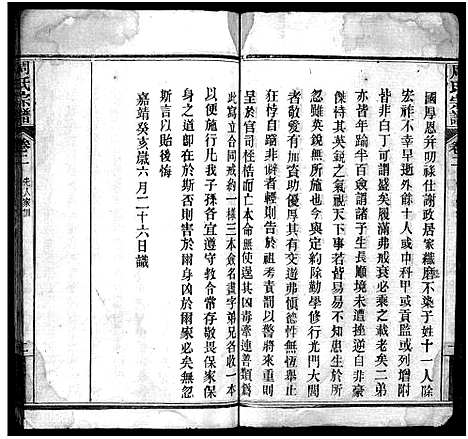 周氏宗譜
卷二
國厚恩并叨祿仕謝政居家纖塵不染于姓十一人除
宏祥不幸早逝外餘十人或中科甲或貢監或列增附
此皆無白丁可謂盛矣履滿弗戒衰必乘之載老矣二弟
亦皆年踰半百僉謂諸子生長順境未遭挫逆自非豪
傑恃其英銳之氣視天下事若皆易與而無難制者
忽雖英銳無所施也今與定約除勤學修行光門大閭
者有加資助優厚其有交遊弗慎德性無恆舉止
狂悖自蹈非僻者輕則告於祖考責罰以警將來重則
呈於官司怪惜而亡本命無使其凶毒牽連善類爲
此寫立合同戒約一樣三本僉名畫字弟兄各收一本
以便施行凡我子孫各宜遵守教令常存敬畏保家保
身之道卽在於斯否則害於爾身凶於爾家必矣勿忽
斯言以貽後悔
嘉靖癸亥歲六月二十六日識
周氏宗譜
卷二